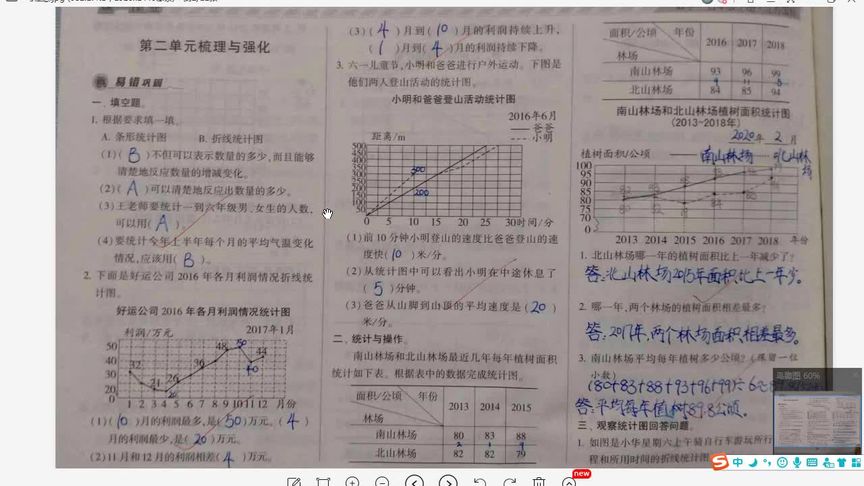 第二单元梳理与强化
易错巩固
一、填空题。
1. 根据要求填一填。
A. 条形统计图 B. 折线统计图
(1)( B )不但可以表示数量的多少,而且能够
清楚地反应数量的增减变化。
(2)( A )可以清楚地反应出数量的多少。
(3)王老师要统计一到六年级男、女生的人数,
可以用( A )。
(4)要统计今年上半年每个月的平均气温变化
情况,应该用( B )。
2. 下面是好运公司 2016 年各月利润情况折线统
计图。
好运公司 2016 年各月利润情况统计图
利润/万元 2017年1月
50
40
30
20
10
0
32 21 20 26 36 48 50 40 44
1 2 3 4 5 6 7 8 9 10 11 12 月份
(1)( 10 )月的利润最多,是( 50 )万元。( 4 )
月的利润最少,是( 20 )万元。
(2)11月和12月的利润相差( 4 )万元。
(3)( 4 )月到( 10 )月的利润持续上升,
( 1 )月到( 4 )月的利润持续下降。
3. 六一儿童节,小明和爸爸进行户外运动。下图是
他们两人登山活动的统计图。
小明和爸爸登山活动统计图
2016年6月
爸爸
小明
距离/m
500
450
400
350
300
250
200
150
100
50
300
200
0 5 10 15 20 25 30 时间/分
(1)前10分钟小明登山的速度比爸爸登山的速
度快( 10 )米/分。
(2)从统计图中可以看出小明在中途休息了
( 5 )分钟。
(3)爸爸从山脚到山顶的平均速度是( 20 )
米/分。
二、统计与操作。
南山林场和北山林场最近几年每年植树面积
统计如下表。根据表中的数据完成统计图。
面积/公顷 年份 2013 2014 2015
林场
南山林场 80 83 88
北山林场 82 82 79
面积/公顷 年份 2016 2017 2018
林场
南山林场 93 96 99
北山林场 84 85 94
南山林场和北山林场植树面积统计图
(2013~2018年)
2020年 2 月
植树面积/公顷 南山林场 北山林场
100
95
90
85
80
75
70
0
2013 2014 2015 2016 2017 2018 年份
1. 北山林场哪一年的植树面积比上一年减少了?
答:北山林场2015年面积比上一年少。
2. 哪一年,两个林场的植树面积相差最多?
答:2017年,两个林场面积相差最多。
3. 南山林场平均每年植树多少公顷?(保留一位
小数)
(80+83+88+93+96+99)÷6≈
答:平均每年植树89.8公顷。
三、观察统计图回答问题。
1. 如图是小华星期六上午骑自行车游玩所行
程和所用时间的折线统计图
鸟瞰图 60%
中
new